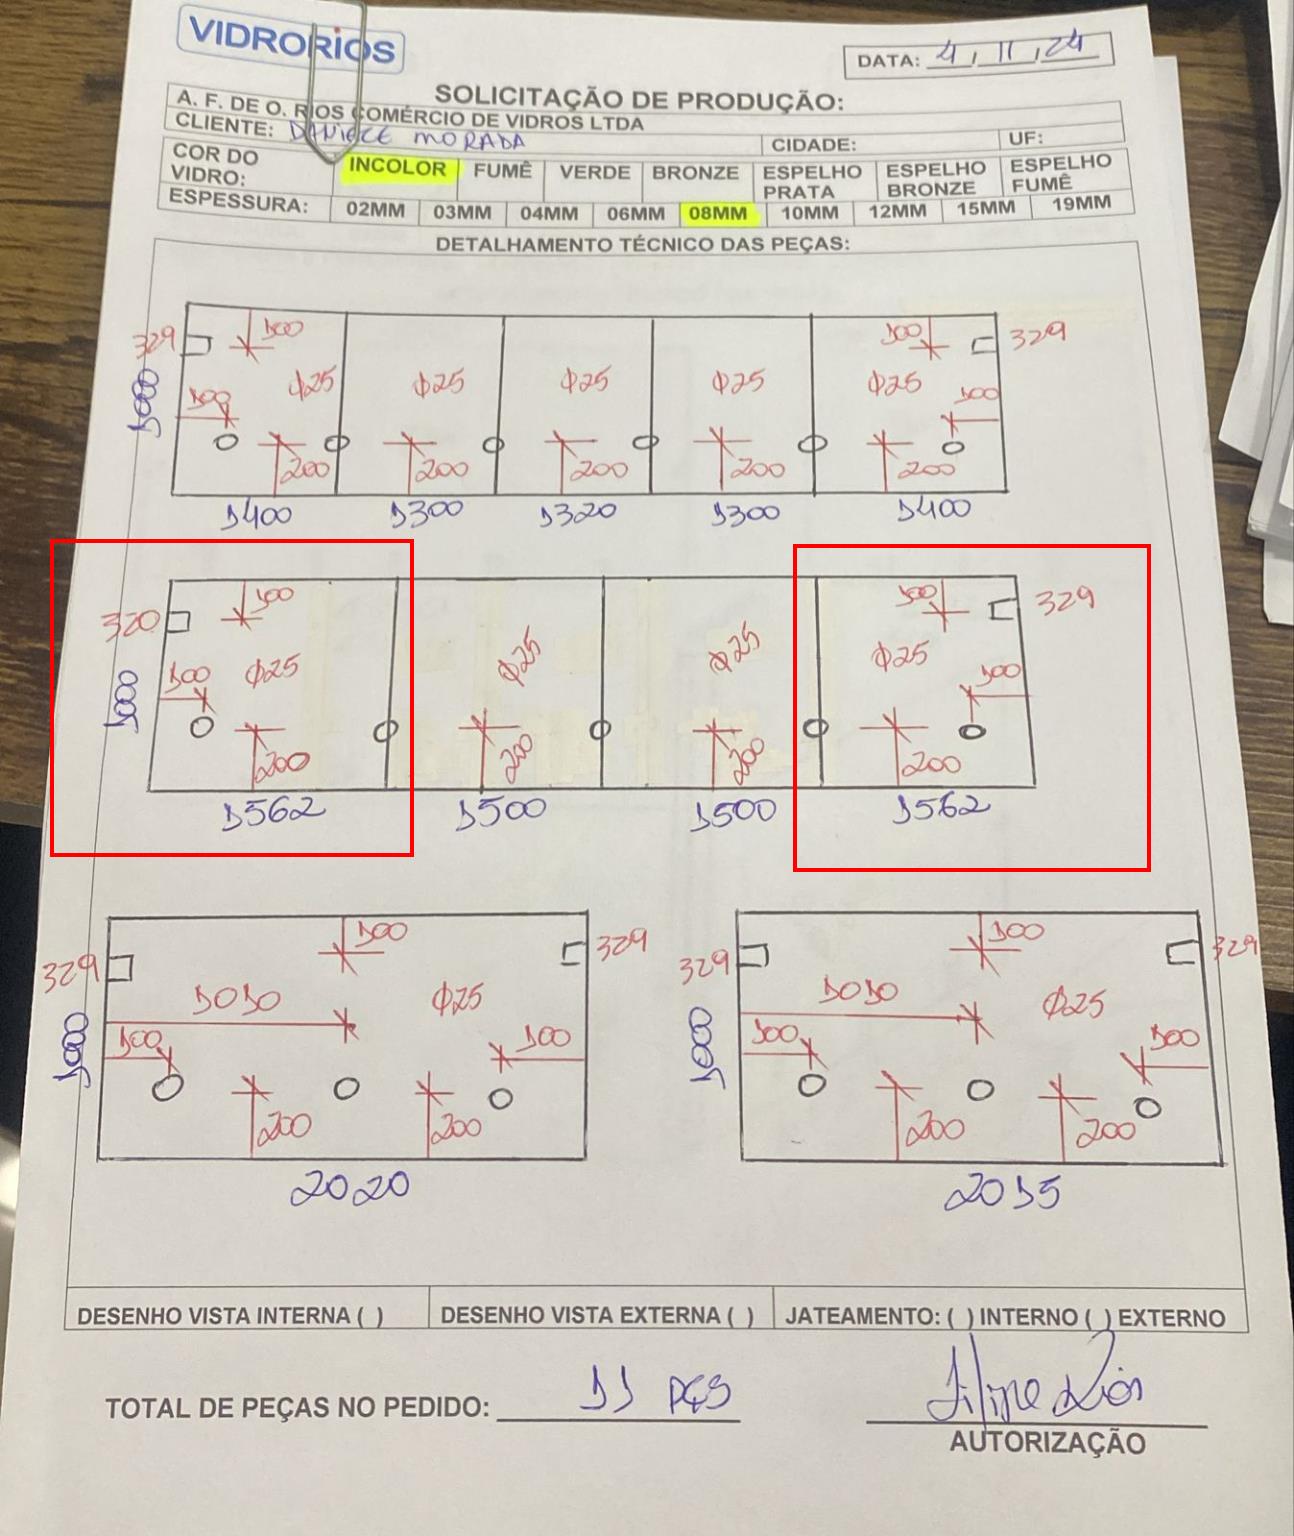 VIDRORIOS
DATA: 4 / 11 / 24
SOLICITAÇÃO DE PRODUÇÃO:
A. F. DE O. RIOS COMÉRCIO DE VIDROS LTDA
CLIENTE: DANIELE MORADA CIDADE: UF:
COR DO VIDRO: INCOLOR FUMÊ VERDE BRONZE ESPELHO PRATA ESPELHO BRONZE ESPELHO FUMÊ
ESPESSURA: 02MM 03MM 04MM 06MM 08MM 10MM 12MM 15MM 19MM
DETALHAMENTO TÉCNICO DAS PEÇAS:
329 100 100 329
1000 100 Φ25 Φ25 Φ25 Φ25 Φ25 100
200 200 200 200 200
1400 1300 1320 1300 1400
320 100 100 329
1000 100 Φ25 Φ25 Φ25 Φ25 100
200 200 200 200
1562 1500 1500 1562
329 100 329 329 100 329
1010 Φ25 1010 Φ25
1000 100 100 1000 100 100
200 200 200 200
2020 2015
DESENHO VISTA INTERNA ( ) DESENHO VISTA EXTERNA ( ) JATEAMENTO: ( ) INTERNO ( ) EXTERNO
TOTAL DE PEÇAS NO PEDIDO: 11 PÇS Filipe Rios
AUTORIZAÇÃO